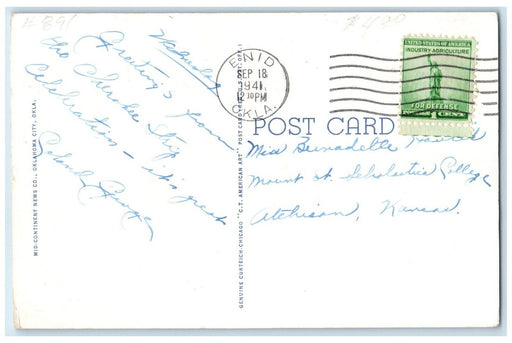 # 891
$ 4.00
Wednesday
Greetings from
the Cherokee Strip
Celebration - its great
MID-CONTINENT NEWS CO., OKLAHOMA CITY, OKLA.
GENUINE CURTEICH-CHICAGO "C.T. AMERICAN ART" POST CARD
ENID
SEP 18
1941
OKLA.
UNITED STATES OF AMERICA
INDUSTRY-AGRICULTURE
FOR DEFENSE
1 CENT
POST CARD
Miss Bernadette
Mount St. Scholastica College
Atchison, Kansas.